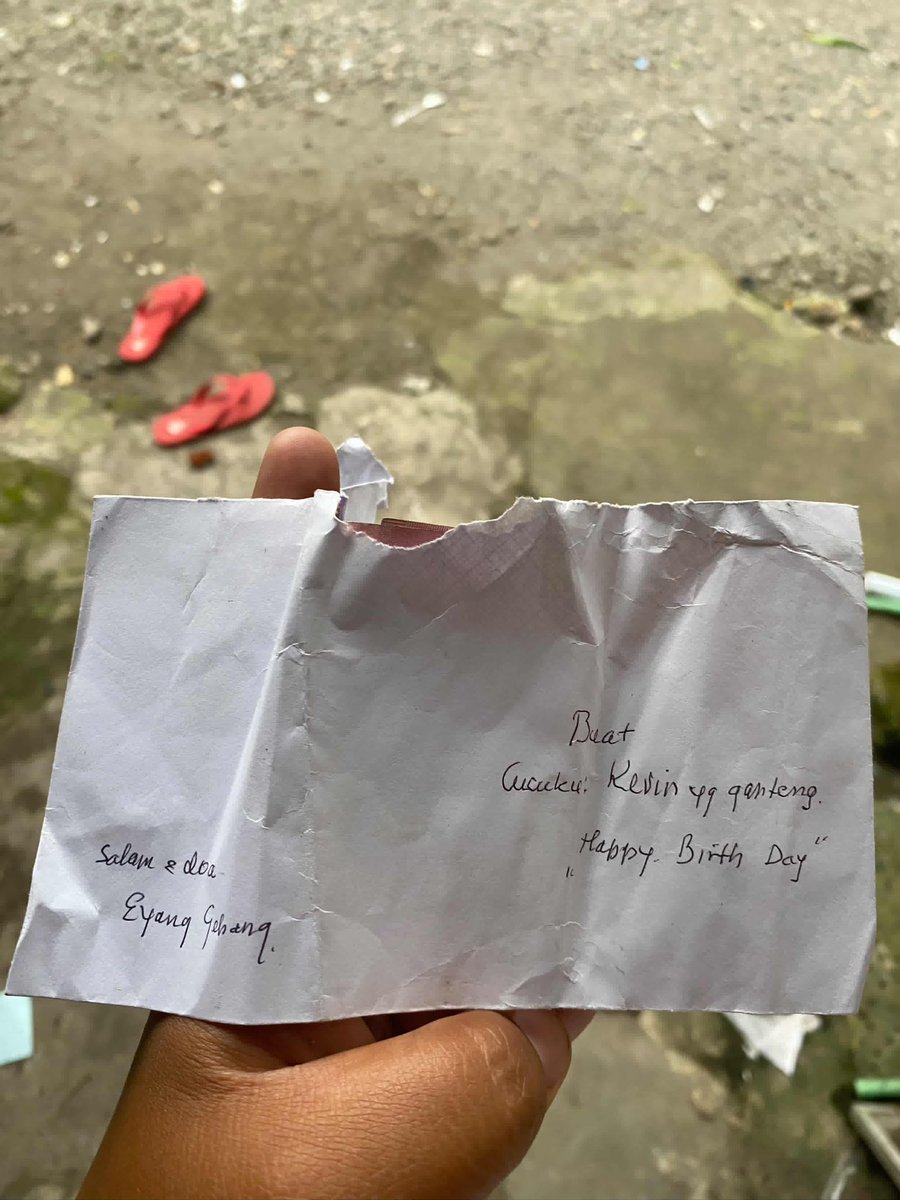 Buat
Cucuku: Kevin yg ganteng.
„Happy. Birth Day"
Salam & doa-
Eyang Gebang.